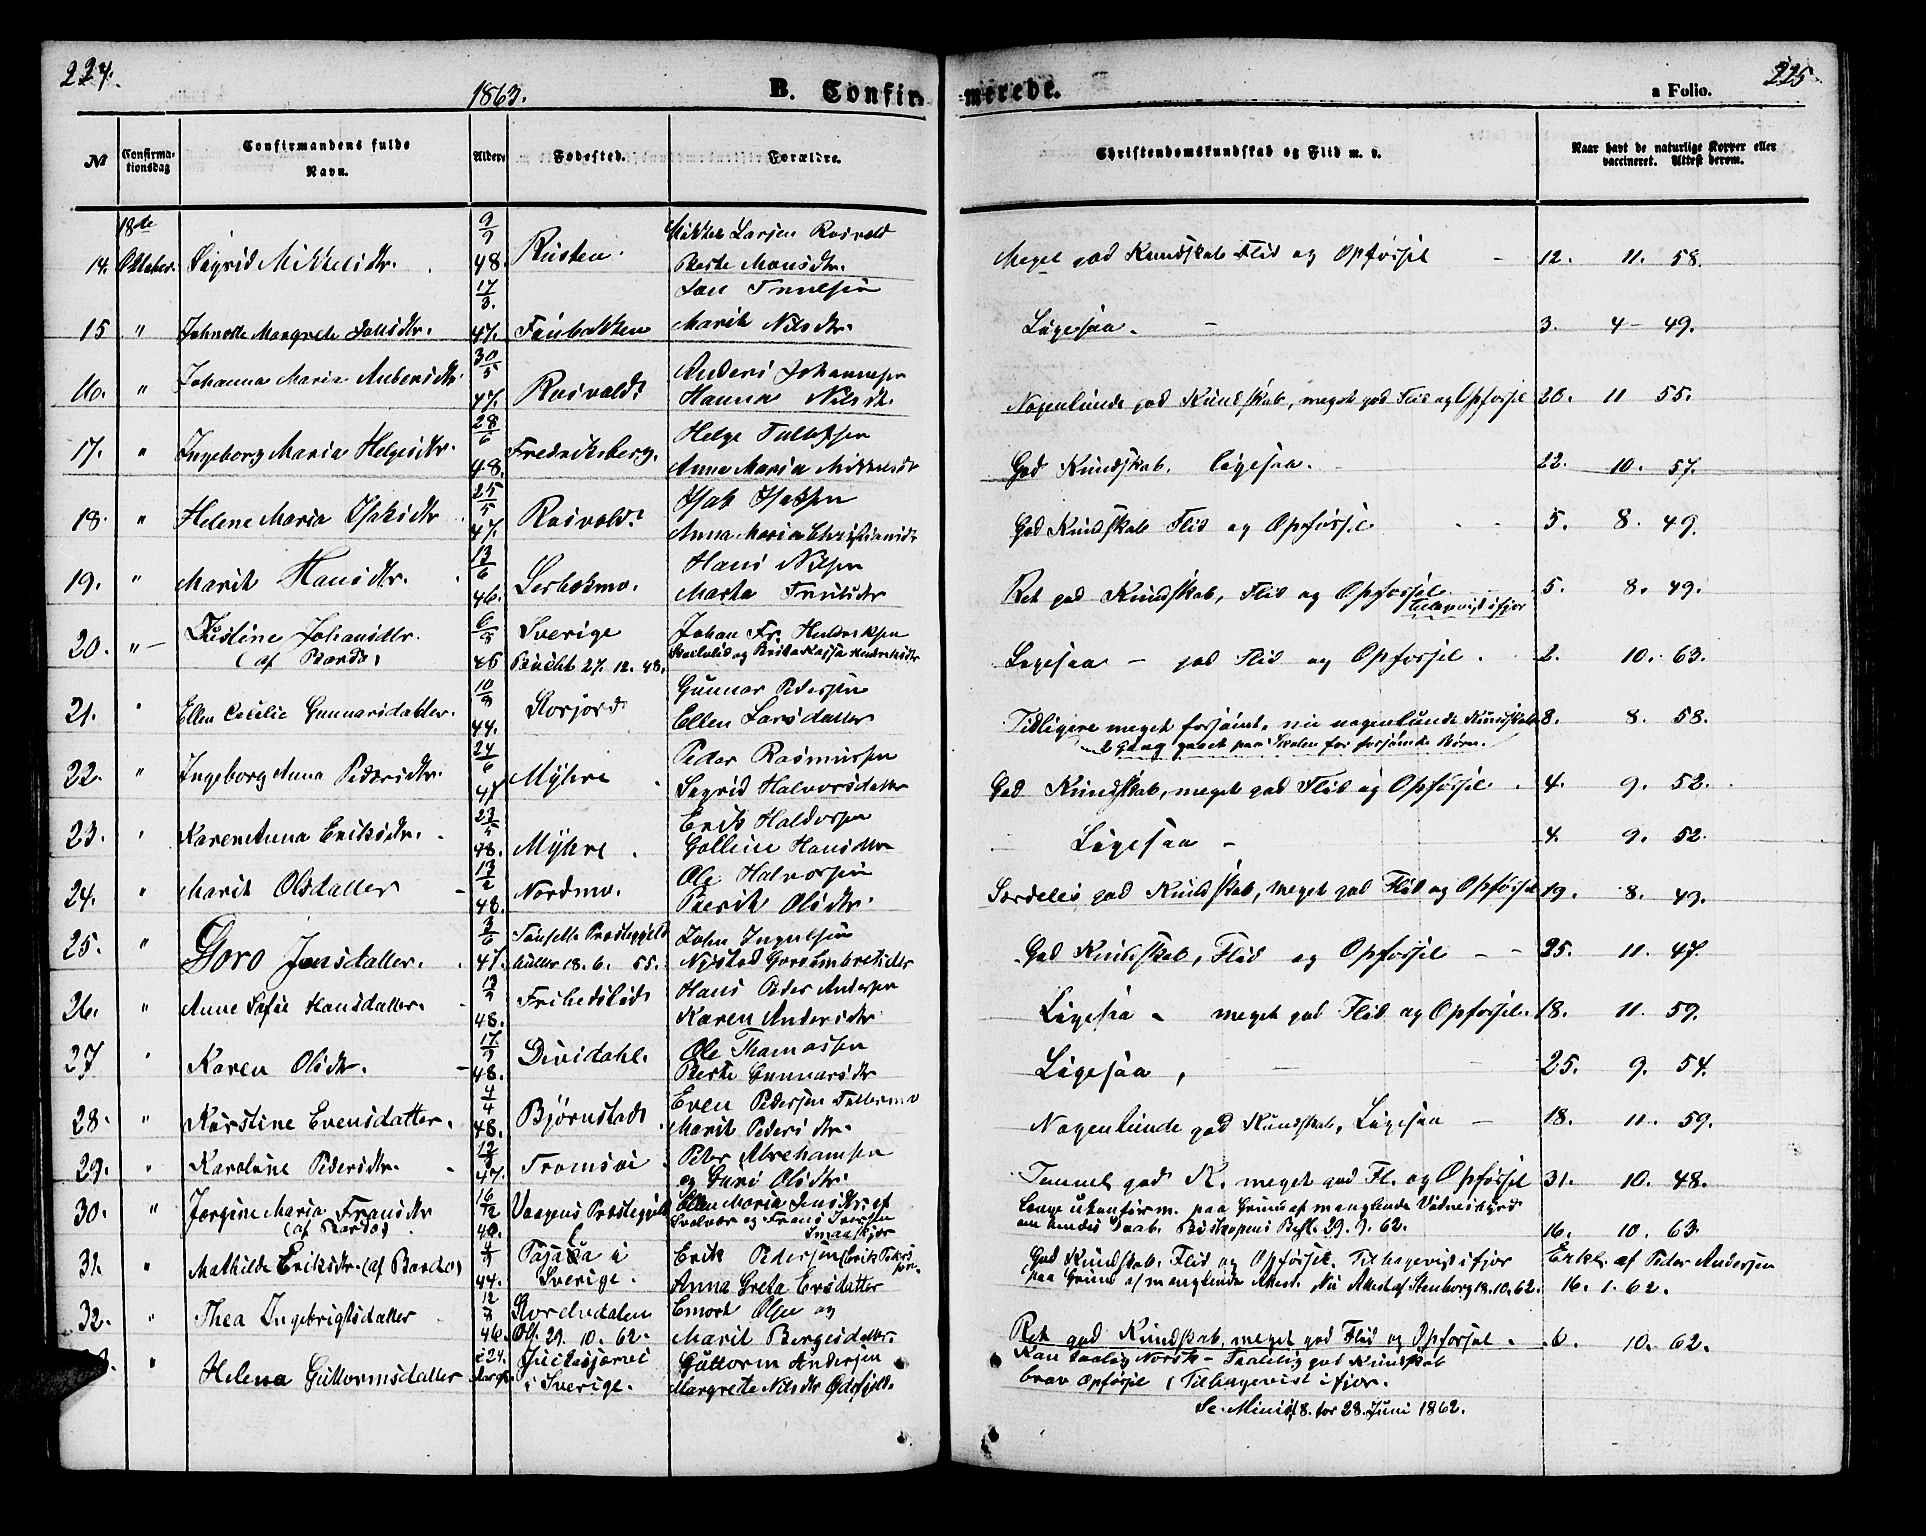 224.
1863.
B. Confir-
merede.
a Folio.
225
No
Confirma-
tionsdag
Confirmandens fulde
Navn.
Alder.
Fødested.
Forældre.
Christendomskundskab og Flid m. v.
Naar havt de naturlige Kopper eller
vaccineret. Attest derom.
18de
14. Oktober. Sigrid Mikkelsdtr. 9/9 48. Rusten. Mikkel Larsen Rosvold
Berte Monsdtr. Meget god Kundskab Flid og Opførsel 12. 11. 58.
15 " Margrete Jonsdtr. 17/3 47. Fosbakken Jon
Marit Nilsdtr. Ligesaa. 3. 4 49.
16. " Johanna Maria Andersdtr 30/5 47. Rosvold Anders Johannesen
Hanna Nilsdtr Nogenlunde god Kundskab, meget god Flid og Opførsel 20. 11 55.
17. " Ingeborg Maria Helgesdtr. 28/6 48. Fredriksberg. Helge Tollefsen
Anna Maria Mikkelsdtr God Kundskab. ligesaa. 22. 10. 57.
18. " Helene Maria Isaksdtr 25/5 47. Rosvold. Isak Isaksen
Anna Maria Christiansdtr God Kundskab Flid og Opførsel 5. 8. 49.
19. " Marit Hansdtr. 13/6 46. Hans Nilsen
Marta Ret god Kundskab, Flid og Opførsel 5. 8. 49.
Tilbagevist ifjor
20. " Justine Johansdtr. 45 Sverige Johan Fr. Hendriksen
(af Bardo) 27. 12. 48. og Brita Kajsa Ligesaa - god Flid og Opførsel. 2. 10. 63.
21. " Ellen Cecilie Gunnarsdatter. 10/9 44. Storjord Gunnar Pedersen
Ellen Larsdatter Tidligere meget forsømt, nu nogenlunde Kundskab 8. 8. 58.
2 Gang gaaet paa Skolen for forsømte Børn.
22. " Ingeborg Anna Pedersdtr. 24/6 47 Myhre Peder Rasmussen
Sigrid Halvorsdatter God Kundskab, meget god Flid og Opførsel. 4. 9. 52.
23. " Karen Anna Eriksdtr. 23/5 48. Myhre. Erik Haldorsen
Golline Hansdtr Ligesaa - 4. 9. 52.
24. " Marit Olsdatter 13/2 48. Nordmo. Ole Halvorsen
Berit Olsdtr. Særdeles god Kundskab, meget god Flid og Opførsel 19. 8. 49.
25. " Goro Jonsdatter. 3/6 47. Tønsetts Præstegjeld John Ingulsen
18. 6. 55. Nystad God Kundskab, Flid og Opførsel 25. 11. 47.
26. " Anne Sofie Hansdatter. 48. Frihedslid Hans Peder Andersen
Karen Andersdtr. Ligesaa - meget god Flid og Opførsel. 18. 11. 59.
27 " Karen Olsdtr. 17/9 48. Dividahl. Ole Thomassen
Berte Gunnarsdtr Ligesaa, 25. 9. 54.
28. " Kirstine Evensdatter. 4/4 48. Bjørnstad Even Pedersen
Marit Pedersdtr. Nogenlunde god Kundskab, Ligesaa 18. 11. 59.
29. " Karoline Pedersdtr. 47. Tromsøe Peter Abrahamsen
og Guri Olsdtr. Temmel. god K. meget god Fl. og Opførsel 31. 10. 48.
30. " Jørgine Maria Fransdtr 16/12 Vaagens Præstegjeld Ellen Maria Jensdtr. af
(af Bardo) Svolvær og Frans Iversen
paa Grund af manglende Vidnesbyrd
om hendes Daab. Biskopens Besl. 29. 9. 62. 16. 10. 63
31. " Mathilde Eriksdtr. (af Bardo) 44. Pajala i
Sverige. Erik Pedersen (Erik Peters
Anna Greta Ersdatter God Kundskab. Flid og Opførsel. Tilbagevist ifjor
paa Grund af manglende Attest. Nu Attest af Stenborg 18. 10. 62. Erkl. af Peder Andersen
16. 1. 62.
32. " Thea Ingebrigtsdatter 12/7 46. 29. 10. 62. Emort Olsen og
Marit Bergesdatter Ret god Kundskab, meget god Flid og Opførsel. 6. 10. 62.
" Helena Guttormsdatter 24. Juckasjærvi
i Sverige. Guttorm Andersen
Margrete Nilsdtr Kan daarlig Norsk - Taalelig god Kundskab
brav Opførsel, Tilbagevist ifjor.
28. Juni 1862.